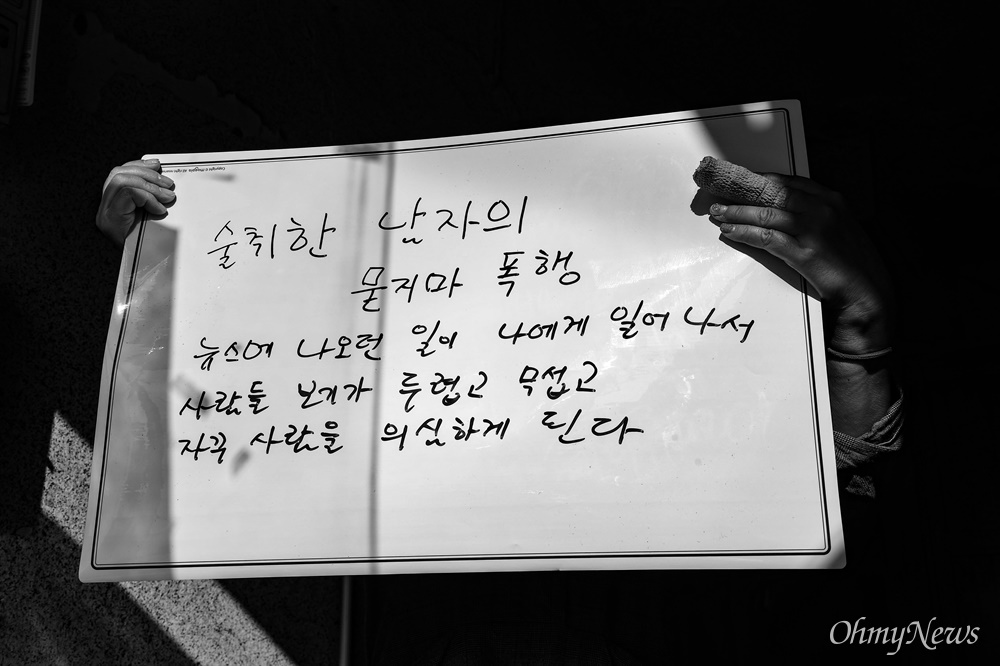 술취한 남자의
묻지마 폭행
뉴스에 나오던 일이 나에게 일어나서
사람들 보기가 두렵고 무섭고
자꾸 사람을 의심하게 된다
OhmyNews